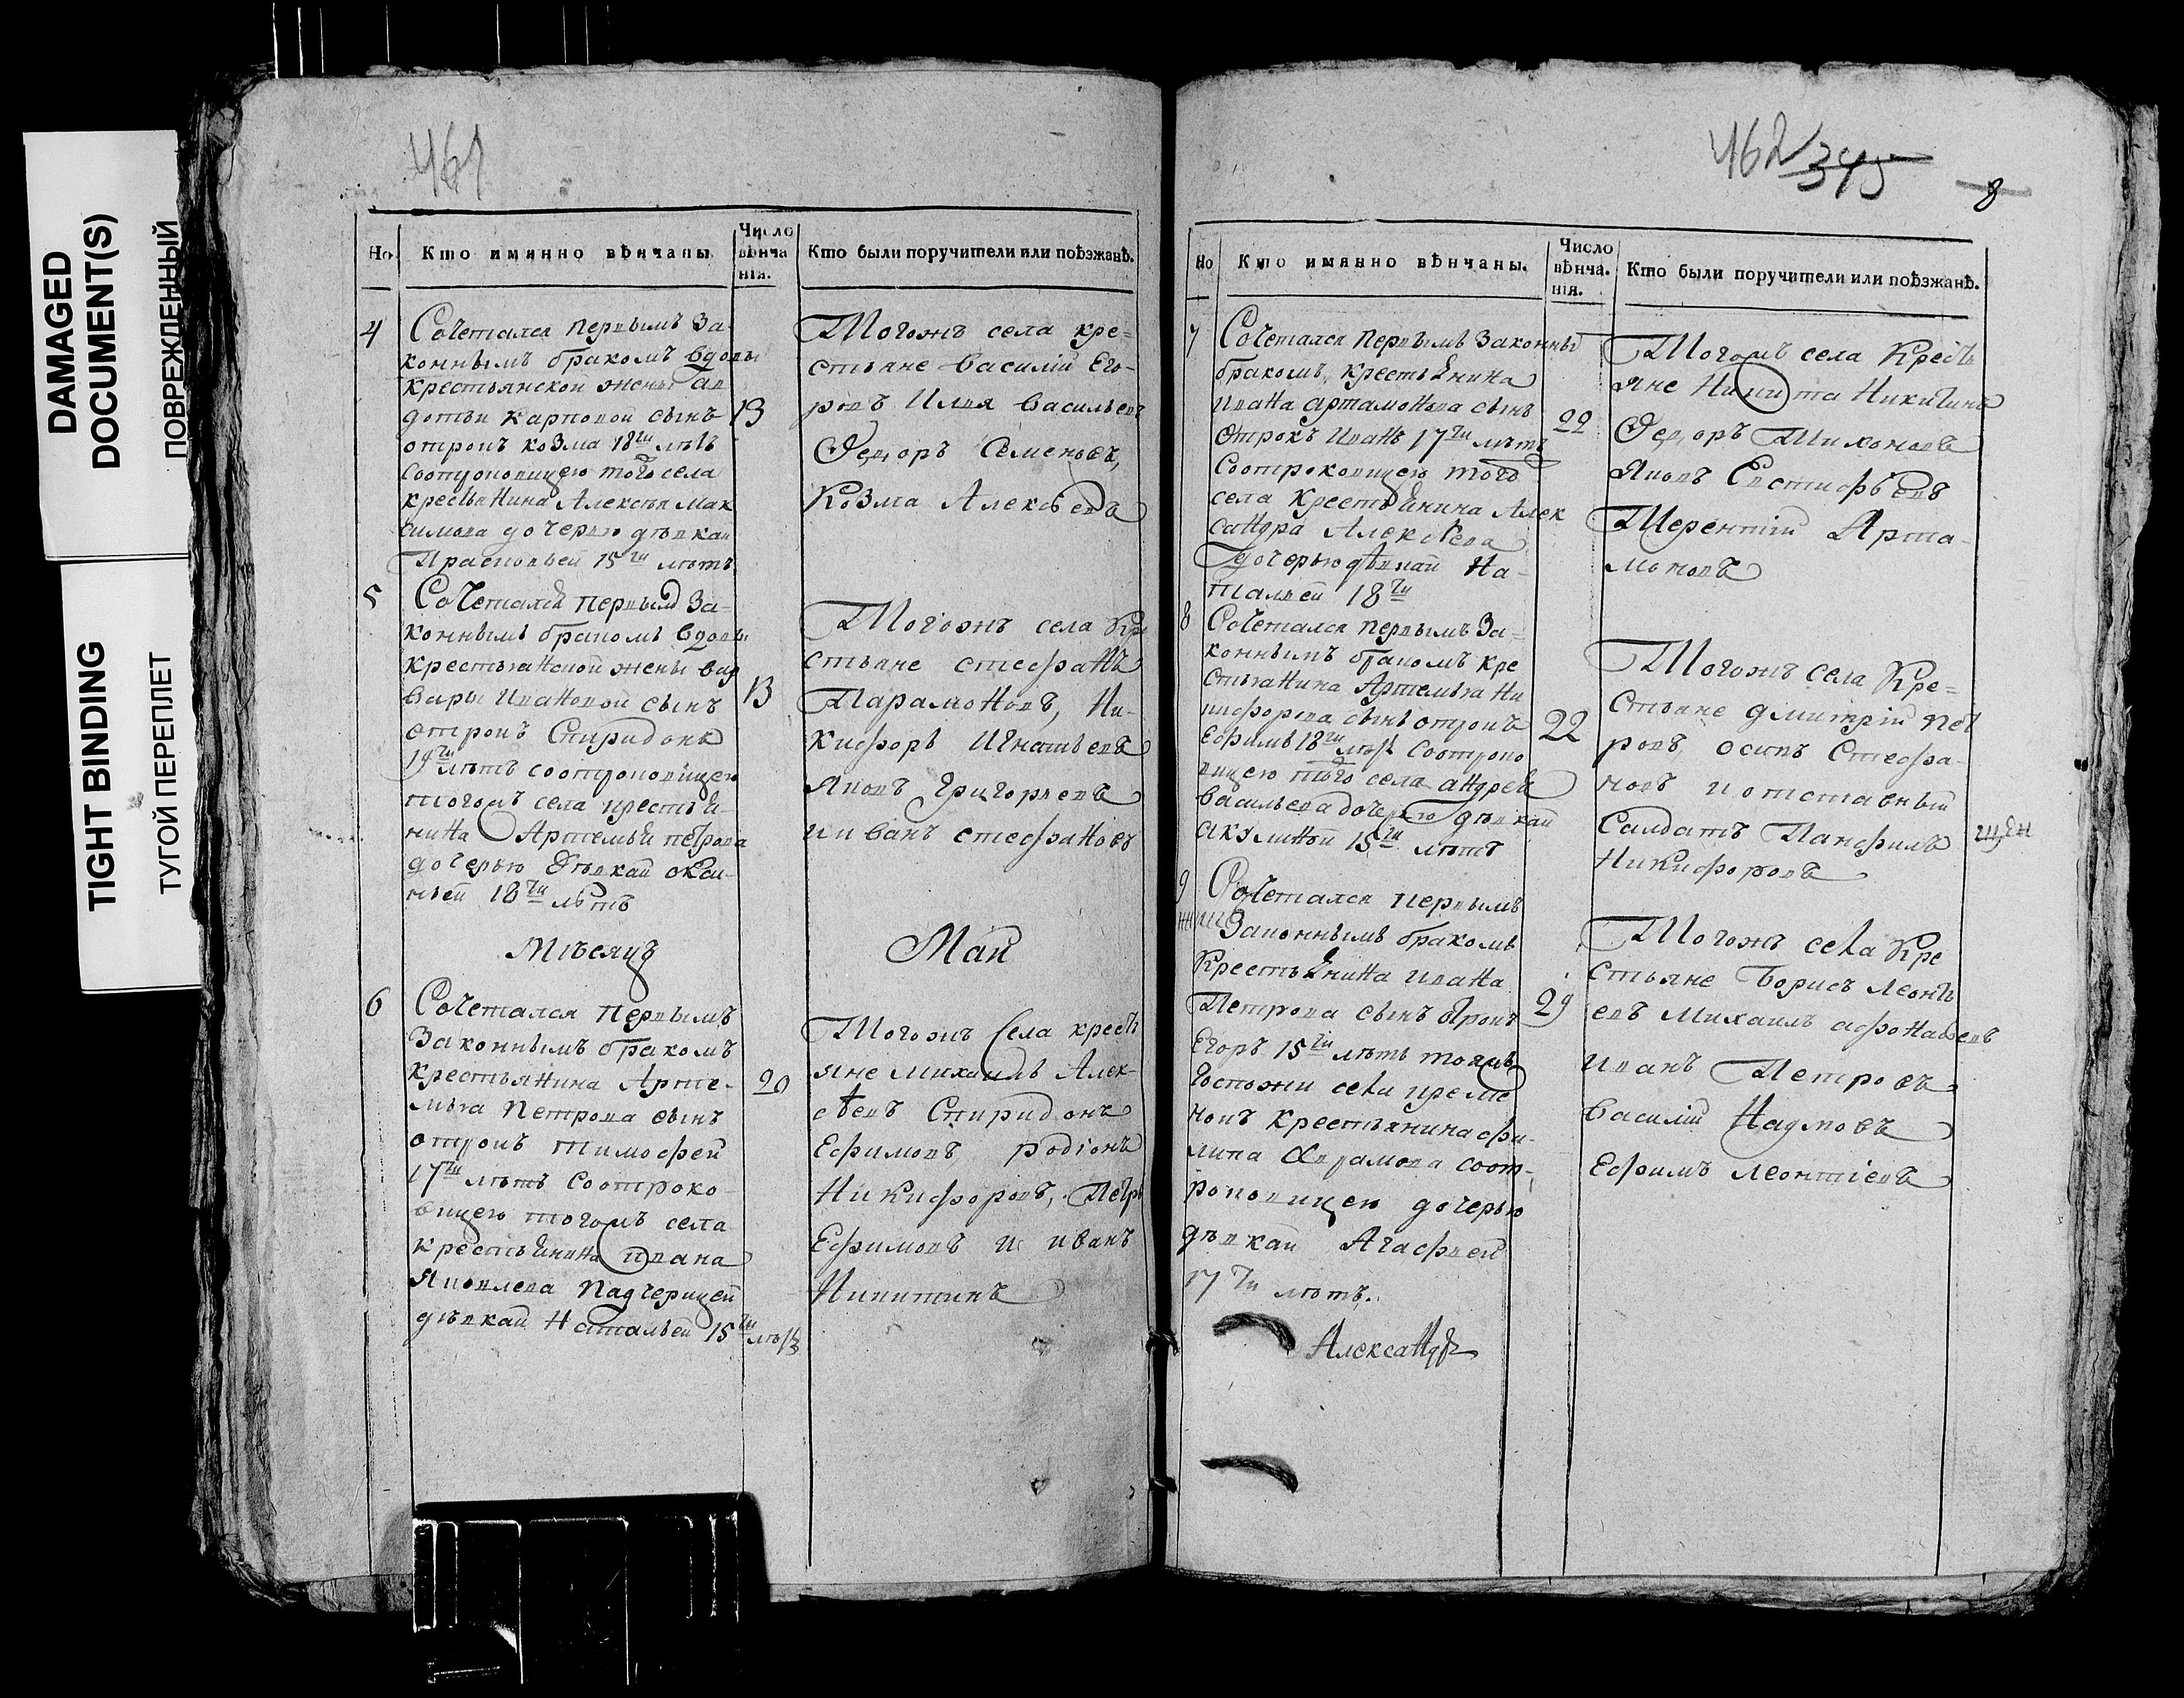 DAMAGED
DOCUMENT(S)
ПОВРЕЖДЕННЫЙ
TIGHT BINDING
ТУГОЙ ПЕРЕПЛЕТ
461
Но
Кто имянно вѣнчаны
Число
вѣнча
нія.
Кто были поручители или поѣзжанѣ.
4
Сочетался первымъ за-
коннымъ бракомъ вдовы
крестьянской жены ав
дотьи карповой сынъ
отрокъ козма 18ти лѣтъ
соотроковицею того села
крестьянина Алексѣя мак
симова дочерью дѣвкаи
Прасковьей 15ти лѣтъ
13
Тогожъ села кре=
стьяне василій Его-
ровъ Илья васильевъ
Федоръ Семеновъ,
Козма Алексѣевъ
5
Сочетался первымъ за=
коннымъ бракомъ вдовы
крестьянской жены вар
вары Ивановой сынъ
отрокъ Спиридонъ
19ти лѣтъ соотроковицею
тогожъ села крестья-
нина Артемья петрова
дочерью дѣвкаи окси-
ньей 18ти лѣтъ
13
Тогожъ села Кре
стьяне стефанъ
Парамоновъ, Ни-
кифоръ Игнатьевъ
Яковъ Григорьевъ
и иванъ стефановъ
Мѣсяцъ
Маи
6
Сочетался первымъ
законнымъ бракомъ
крестьянина Арте-
мья Петрова сынъ
отрокъ тимофей
17ти лѣтъ соотроко-
вицею тогожъ села
крестьянина ивана
Яковлева падчерицей
дѣвкаи Натальей 15ти лѣтъ
20
Тогожъ села кресть
яне михаилъ Алек-
сѣевъ Спиридонъ
Ефимовъ, родіонъ
Никифоровъ, Петръ
Ефимовъ и иванъ
Никитинъ
462
345
8
Но
Кто имянно вѣнчаны.
Число
вѣнча.
нія.
Кто были поручители или поѣзжанѣ.
7
Сочетался первымъ законны
бракомъ, крестьянина
ивана артамонова сынъ
отрокъ Иванъ 17ти лѣтъ
соотроковицею того
села крестьянина Алек
сандра Алексѣева
дочерью дѣвкаи На-
тальей 18ти
22
Тогожъ села Кресть
яне Никита Никитинъ
Федоръ Тихоновъ
Яковъ Евстифѣевъ
Терентій Арта-
моновъ
8
Сочетался первымъ за=
коннымъ бракомъ кре
стьянина Артемья Ни
кифорова сынъ отрокъ
Ефимъ 18ти лѣтъ соотроко
вицею того села андрея
васильева дочерью дѣвкаи
акулиной 15ти лѣтъ
22
Тогожъ села Кре=
стьяне дмитрій пет
ровъ, осипъ Стефа-
новъ и отставный
Салдатъ Панфилъ
Никифоровъ
9
Сочетался первымъ
законнымъ бракомъ
Крестьянина ивана
Петрова сынъ отрокъ
Егоръ 15ти лѣтъ тояжъ
Госпожи села креме
нокъ крестьянина фи-
липа Аврамова соот-
роковицею дочерью
дѣвкаи Агафьей
17ти лѣтъ.
29
Тогожъ села Кре
стьяне Борисъ леонть
евъ Михаилъ афонасьевъ
иванъ Петровъ
василій Наумовъ
Ефимъ леонтіевъ
Александръ